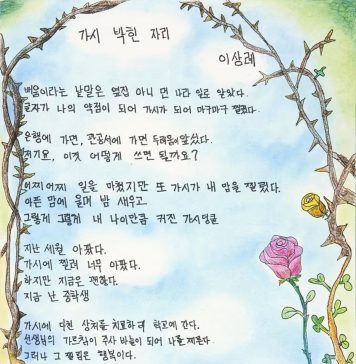 가시 박힌 자리
이삼례
배움이라는 낱말은 옆집 아니 먼 나라 일로 알았다.
글자가 나의 약점이 되어 가시가 되어 마구마구 찔렀다.
은행에 가면, 관공서에 가면 두려움이 앞섰다.
저기요, 이것 어떻게 쓰면 될까요?
어찌어찌 일을 마쳤지만 또 가시가 내 맘을 찔렀다.
아픈 맘에 울며 밤 새우고
그렇게 그렇게 내 나이만큼 커진 가시덩쿨
지난 세월 아팠다.
가시에 찔려 너무 아팠다.
하지만 지금은 괜찮다.
지금 난 중학생
가시에 다친 상처를 치료하러 학교에 간다.
선생님의 가르침이 주사 바늘이 되어 나를 찌른다.
그러나 그 찔림은 행복이다.